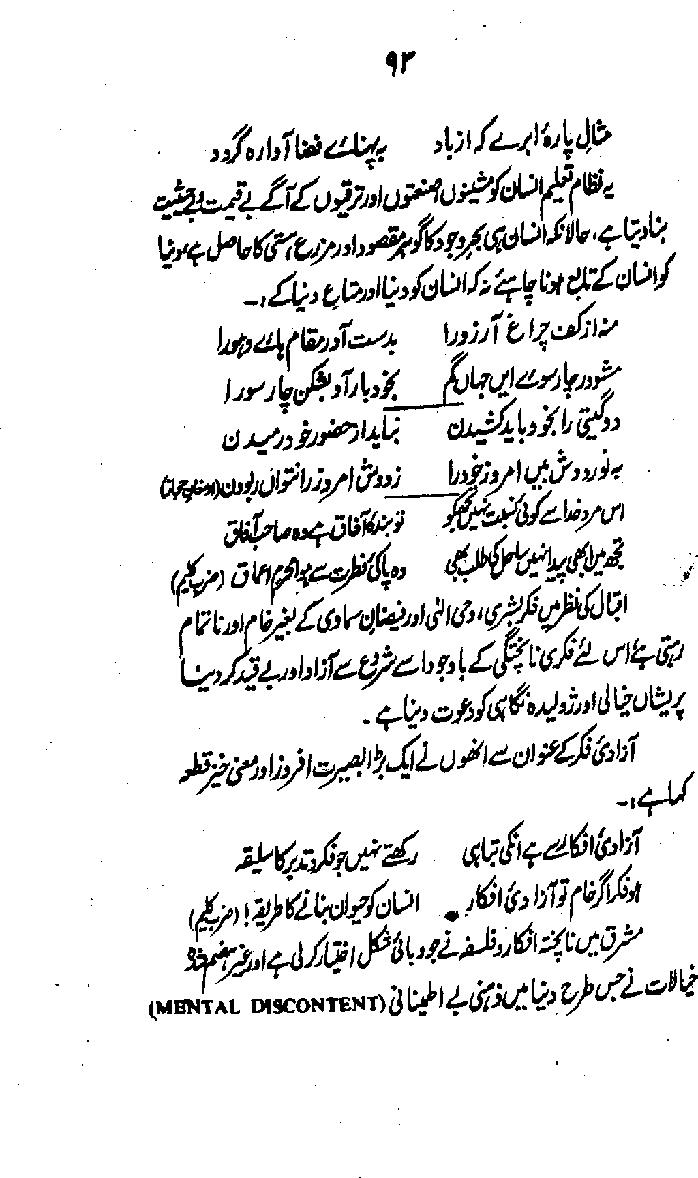 ۹۳
مثالِ پارۂ ابرے کہ از باد بہ پہنائے فضا آوارہ گردد
یہ نظام تعلیم انسان کو مشینوں، صنعتوں اور ترقیوں کے آگے بے قیمت و بے حیثیت
بنا دیتا ہے، حالانکہ انسان ہی بحر وجود کا گوہر مقصود اور مزرعِ ہستی کا حاصل ہے، دنیا
کو انسان کے تابع ہونا چاہئے نہ کہ انسان کو دنیا اور متاعِ دنیا کے :۔
منہ از کف چراغ آرزو را بدست آور مقام ہائے و ہو را
مشو در چار سوے ایں جہاں گم بخود باز آ و بشکن چار سو را
دو گیتی را بخود باید کشیدن نباید از حضور خود رمیدن
بہ نور دوش بیں امروز خود را ز دوش امروز را نتواں ربودن (ارمغان حجاز)
اس مردِ خدا سے کوئی نسبت نہیں تجھ کو تو بندۂ آفاق ہے وہ صاحبِ آفاق
تجھ میں ابھی پیدا نہیں ساحل کی طلب بھی وہ پاکیٔ فطرت سے ہوا محرم اعماق (ضرب کلیم)
اقبال کی نظر میں فکر بشری، وحی الٰہی اور فیضان سماوی کے بغیر خام اور ناتمام
رہتی ہے اس لئے فکری ناپختگی کے باوجود اسے شروع سے آزاد اور بے قید کر دینا
پریشاں خیالی اور ژولیدہ نگاہی کو دعوت دینا ہے۔
آزادیٔ فکر کے عنوان سے انھوں نے ایک بڑا بصیرت افروز اور معنی خیز قطعہ
کہا ہے :۔
آزادیٔ افکار سے ہے انکی تباہی رکھتے نہیں جو فکر و تدبر کا سلیقہ
ہو فکر اگر خام تو آزادیٔ افکار انسان کو حیوان بنانے کا طریقہ! (ضرب کلیم)
مشرق میں ناپختہ افکار و فلسفہ نے جو وبائی شکل اختیار کر لی ہے اور غیر ہضم شدہ
خیالات نے جس طرح دنیا میں ذہنی بے اطمینانی (MENTAL DISCONTENT)